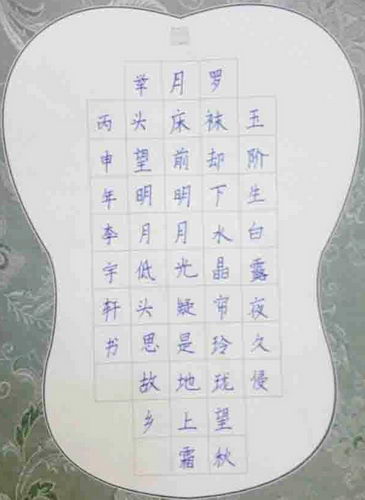 玉阶生白露夜久侵
罗袜却下水晶帘玲珑望秋
月床前明月光疑是地上霜
举头望明月低头思故乡
丙申年李宇轩书